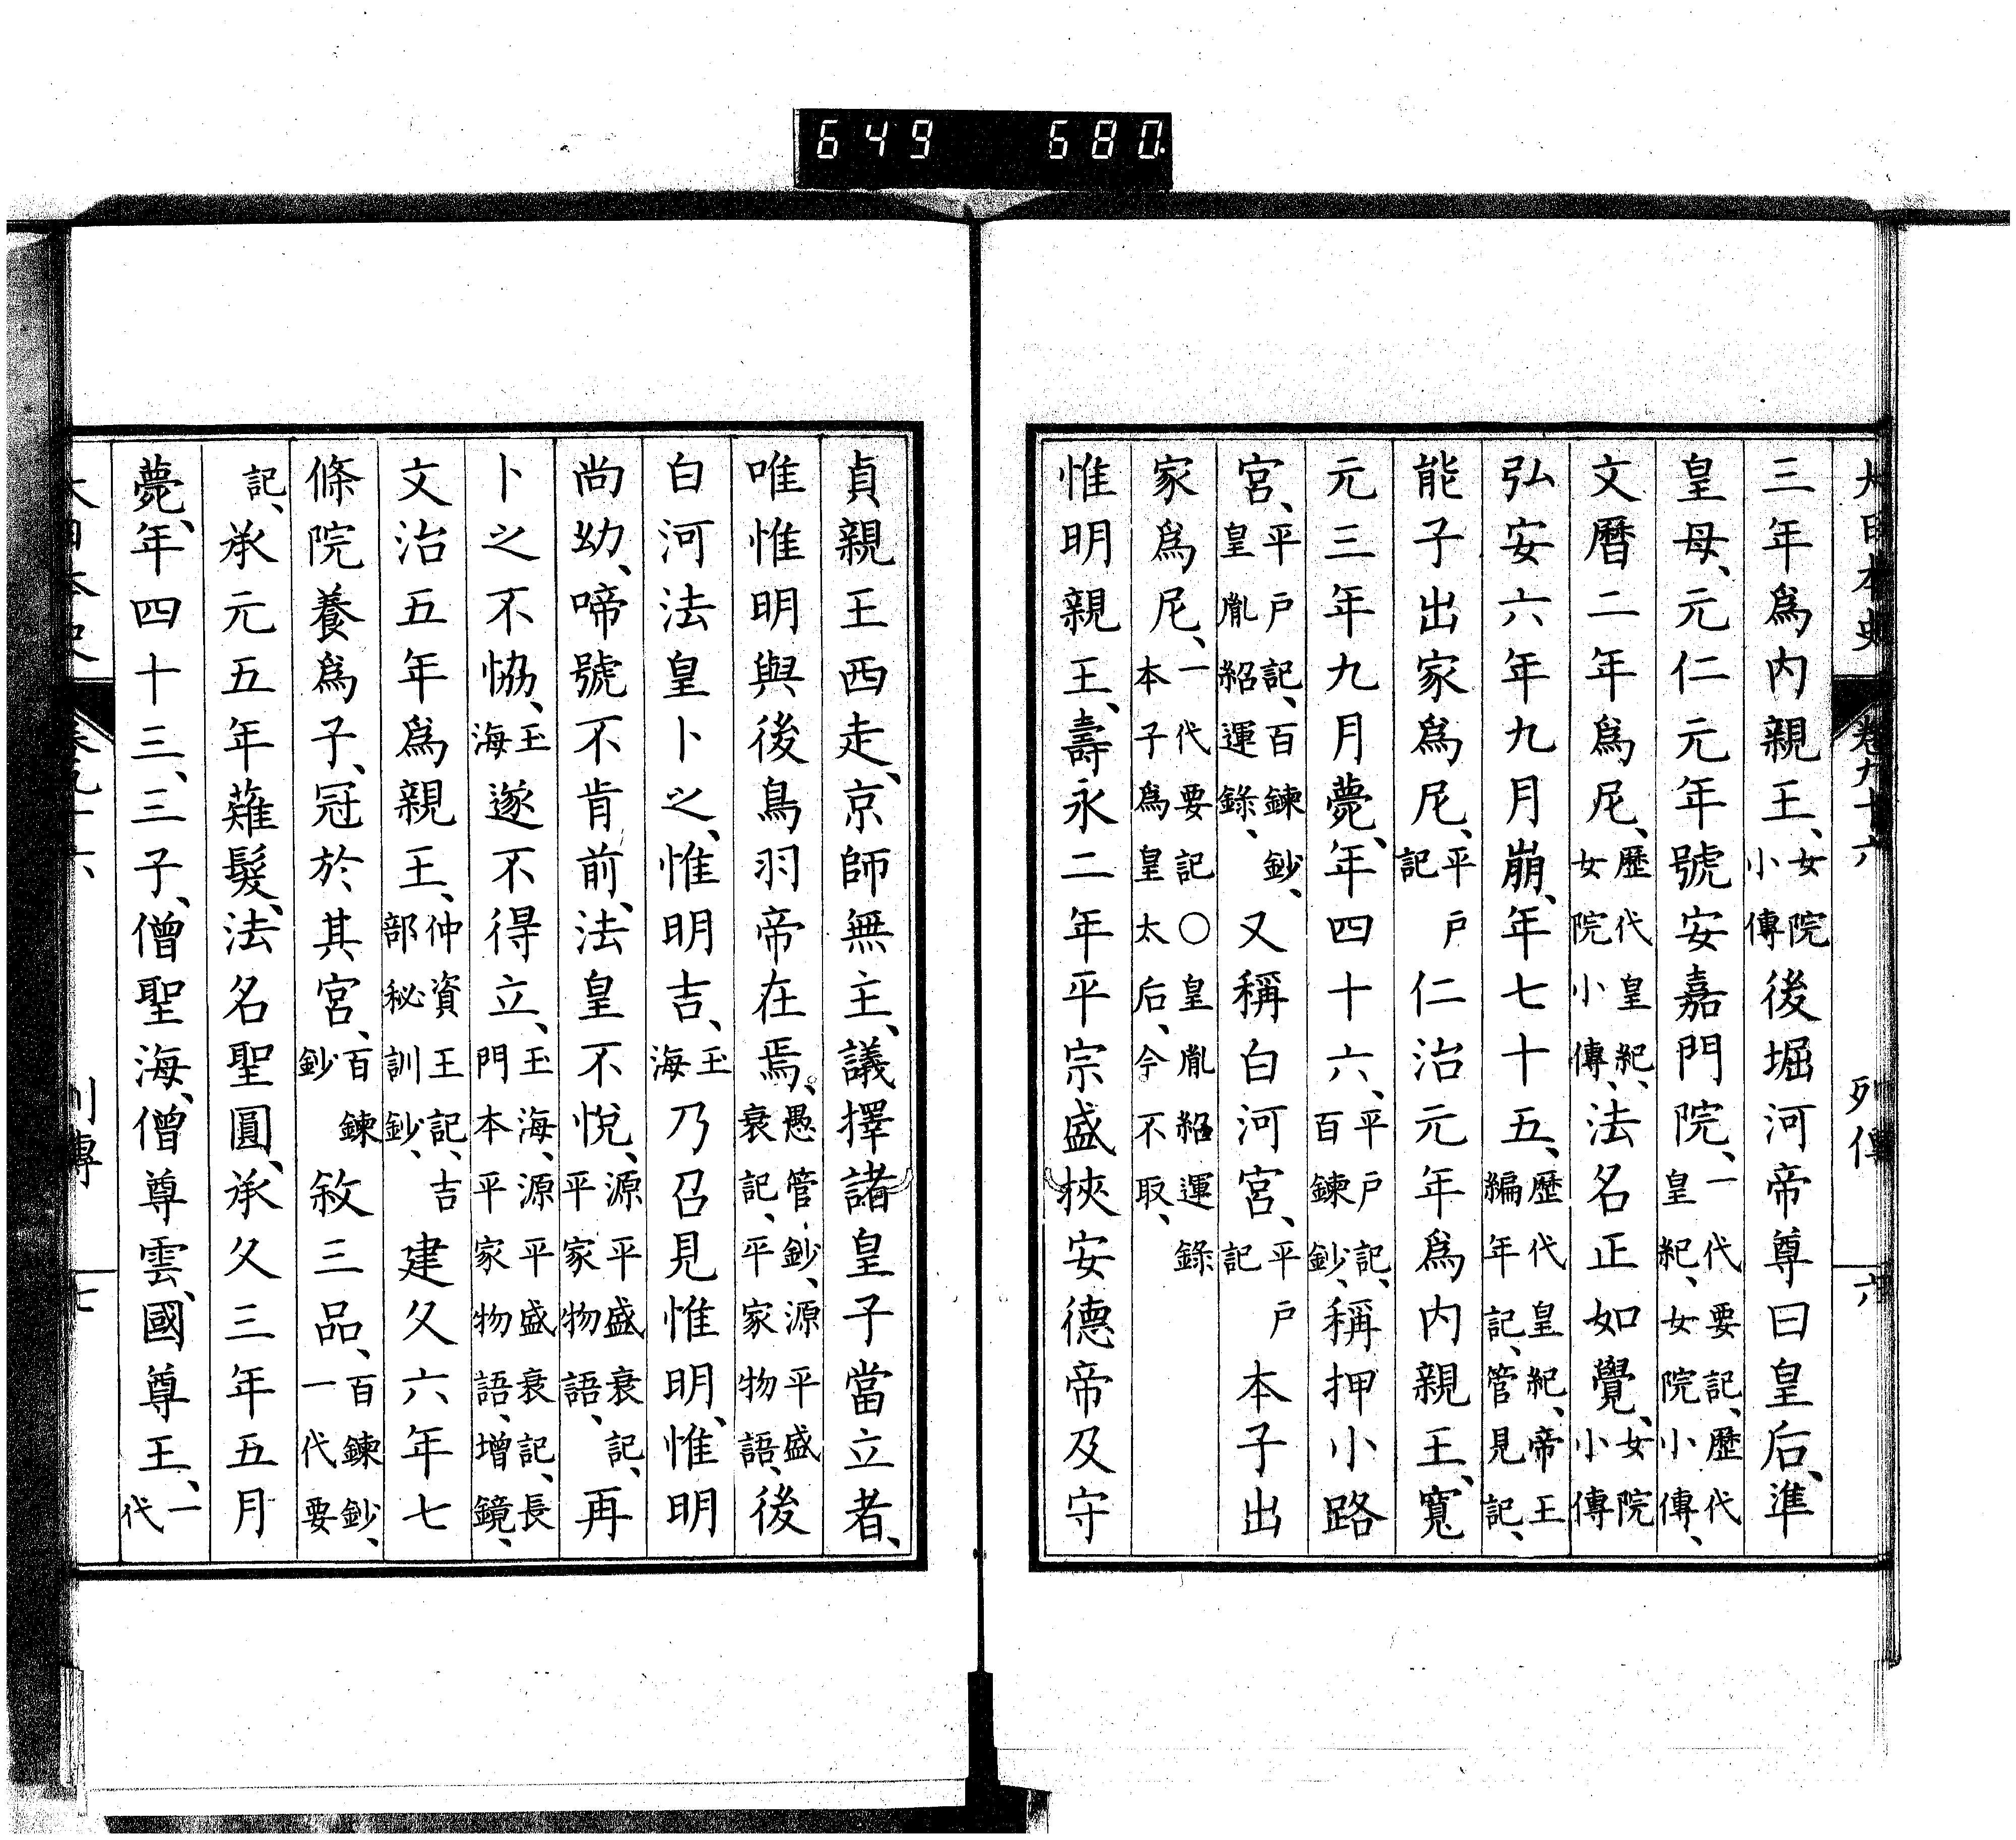 649 680
大日本史 卷九十六 列傳 六
三年爲内親王、女院小傳後堀河帝尊曰皇后、準
皇母、元仁元年號安嘉門院、一代要記、歷代皇紀、女院小傳、
文曆二年爲尼、歷代皇紀、女院小傳、法名正如覺、女院小傳
弘安六年九月崩、年七十五、歷代皇紀、帝王編年記、管見記、
能子出家爲尼、平戸記仁治元年爲内親王、寬
元三年九月薨、年四十六、平戸記、百鍊鈔、稱押小路
宮、平戸記、百鍊鈔、皇胤紹運錄、又稱白河宮、平戸記本子出
家爲尼、一代要記○皇胤紹運錄本子爲皇太后、今不取、
惟明親王、壽永二年平宗盛挾安德帝及守
貞親王西走、京師無主、議擇諸皇子當立者、
唯惟明與後鳥羽帝在焉、愚管鈔、源平盛衰記、平家物語、後
白河法皇卜之、惟明吉、玉海乃召見惟明、惟明
尚幼、啼號不肯前、法皇不悅、源平盛衰記、平家物語、再
卜之不協、玉海遂不得立、玉海、源平盛衰記、長門本平家物語、增鏡、
文治五年爲親王、仲資王記、吉部秘訓鈔、建久六年七
條院養爲子、冠於其宮、百鍊鈔敘三品、百鍊鈔、一代要
記、承元五年薙髮、法名聖圓、承久三年五月
薨、年四十三、三子、僧聖海、僧尊雲、國尊王、一代
大日本史 卷九十六 列傳 七